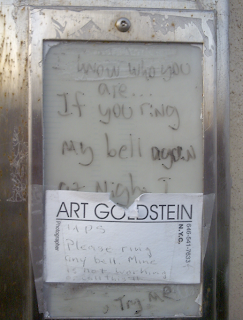 I know who you
are...
If you ring
my bell again
at Night I
ART GOLDSTEIN
Photographer
N.Y.C.
UPS
Please ring
my bell. Mine
is not working
, Try me.